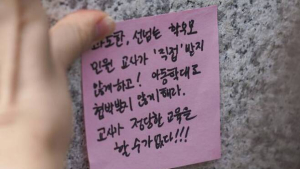 과도한, 선넘는 학부모
민원 교사가 '직접' 받지
않게하고! 아동학대로
협박받지 않게 해라.
교사가 정당한 교육을
할 수가 없다!!!